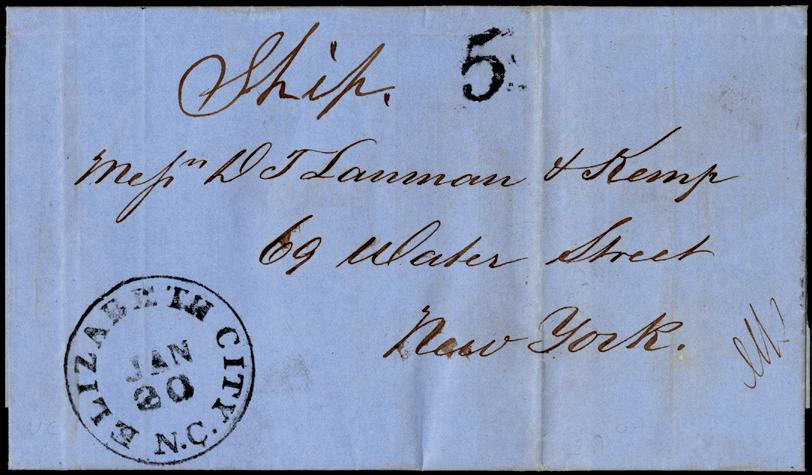 Ship. 5
Messrs D T Lanman & Kemp
69 Water Street
New York.
ELIZABETH CITY. N.C.
JAN
20